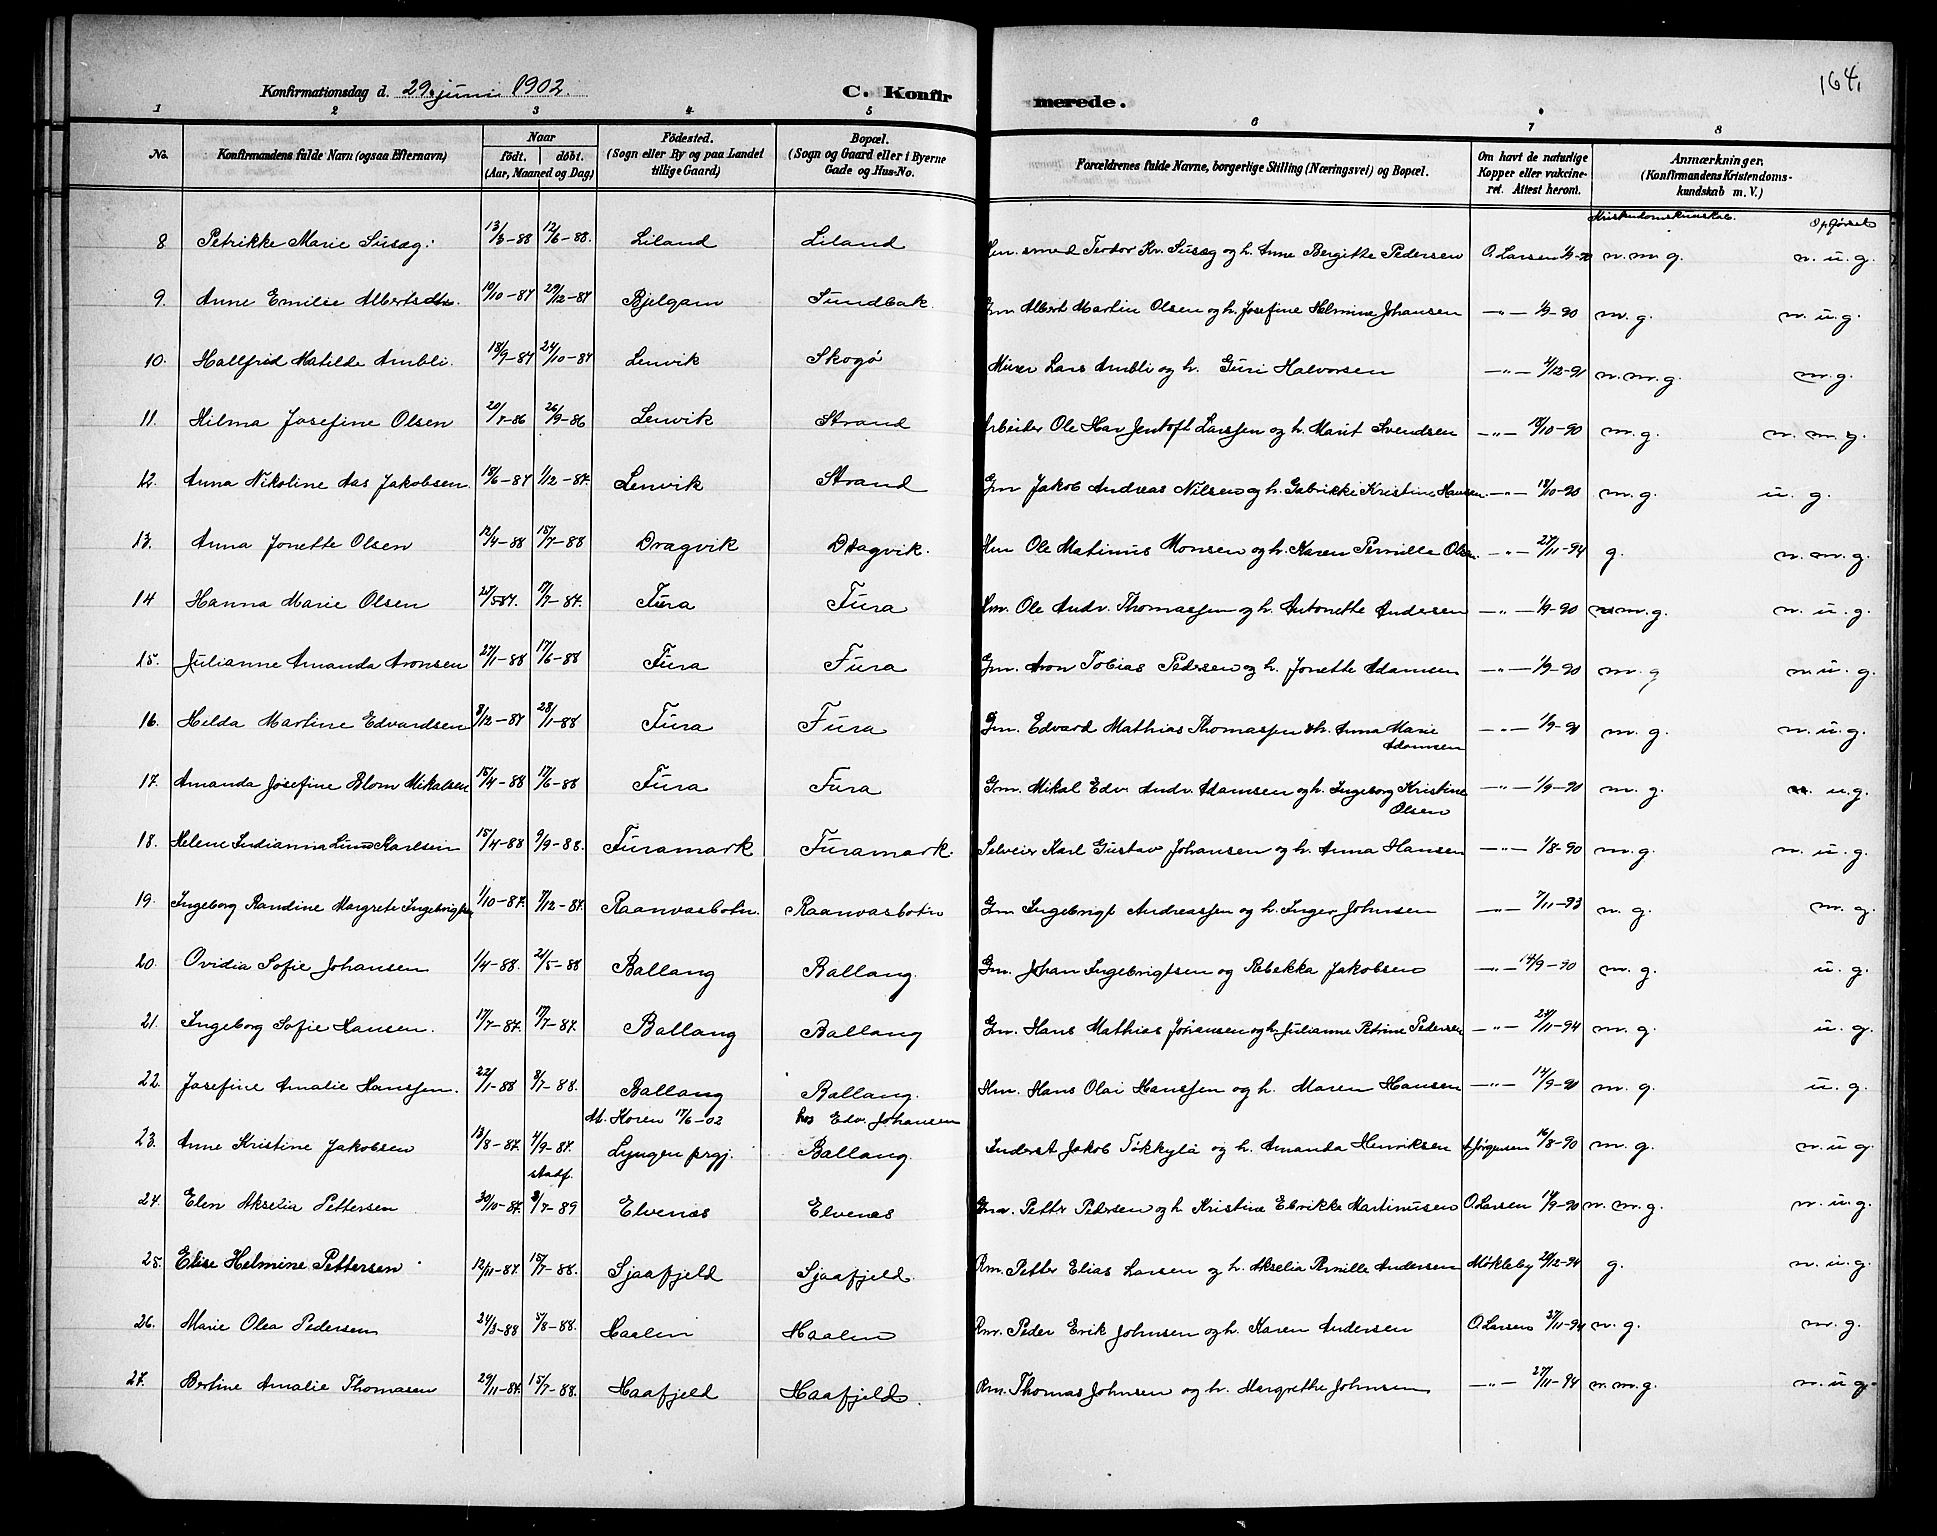 Konfirmationsdag d. 29. juni 1902. C. Konfirmerede. 164.
1 2 3 4 5 6 7 8
No. Konfirmandens fulde Navn (ogsaa Efternavn) Naar födt. döbt. (Aar, Maaned og Dag) Födested. (Sogn eller By og paa Landet tillige Gaard) Bopæl. (Sogn og Gaard eller i Byerne Gade og Hus-No. Forældrenes fulde Navne, borgerlige Stilling (Næringsvei) og Bopæl. Om havt de naturlige Kopper eller vakcineret. Attest herom. Anmærkninger. (Konfirmandens Kristendomskundskab m. V.)
Kristendomskundskab. Opførsel
8 Petrikke Marie Susæg. 13/3-88 12/6-88. Liland Liland Hm. smed Teodor Kr. Susæg og h. Anne Bergitte Pedersen O. Larsen 1/9-90 n. m. g. n. u. g.
9. Anne Emilie Albertsdtr. 10/10-87 29/12-87 Bjelgam Sundbak. Gm Albert Martin Olsen og h. Josefine Helmine Johansen —"— 1/9-90 m. g. n. u. g.
10. Hallfrid Matilde Ambli. 18/9-87 24/10-87 Lenvik Skogø Murer Lars Ambli og h. Guri Halvorsen —"— 4/12-91 n. m. g. m. g.
11. Hilma Josefine Olsen 20/7-86 26/9-86 Lenvik Strand Arbeider Ole Har. Jentoft Larssen og h. Marit Svendsen —"— 18/10-90 m. g. n. m. g.
12. Anna Nikoline Aas Jakobsen 18/6-87 1/12-87. Lenvik Strand Gm Jakob Andreas Nilsen og h. Gabrikke Kristine Hansen —"— 18/10-90 m. g. u. g.
13. Anna Jonette Olsen 12/4-88 15/7-88 Dragvik Dragvik. Hm Ole Matinus Monsen og h. Karen Pernille Olsen. —"— 27/11-94 g. n. m. g.
14 Hanna Marie Olsen 25/5-87. 17/7-87. Fura Fura Hm. Ole Andr. Thomassen og h. Antonette Andersen —"— 1/9-90 m. g. n. u. g.
15. Julianne Amanda Aronsen 27/1-88 17/6-88 Fura Fura Gm. Aron Tobias Pedersen og h. Jonette Adamsen —"— 1/9-90 m. g n. u. g.
16. Hilda Martine Edvardsen 8/12-87 28/1-88 Fura Fura Gm. Edvard Mathias Thomassen & h. Anna Marie Adamsen —"— 1/9-90 m. g. n. u. g.
17. Amanda Josefine Blom Mikalsen 15/4-88 17/6-88 Fura Fura Gm. Mikal Edv. Andr. Adamsen og h. Ingeborg Kristine Olsen —"— 1/9-90 m. g. u. g.
18. Helene Indianna Lund Karlsen 15/4-88 9/9-88. Furamark Furamark. Selveier Karl Gustav Johansen og h. Anna Hansen —"— 1/8-90 m. g. n. u. g.
19. Ingeborg Randine Margrete Ingebrigtsen 1/10-87. 7/12-87. Raanvasbotn. Raanvasbotn Gm Ingebrigt Andreassen og h. Inger Johnsen —"— 7/11-93 n. g. m. g.
20. Ovidia Sofie Johansen 1/4-88. 21/5-88 Ballang Ballang. Gm. Johan Ingebrigtsen og Rebekka Jakobsen —"— 14/9-90 m. g. u. g.
21. Ingeborg Sofie Hansen. 17/7-87. 17/7-87. Ballang Ballang Gm. Hans Mathias Johansen og h. Julianne Petrine Pedersen —"— 24/11-94 m. g. u. g.
22. Josefine Amalie Hanssen. 22/1-88 8/7-88. Ballang Ballang. Hm. Hans Olai Hanssen og h. Maren Hansen —"— 14/9-90 m. g. u. g.
At. Koren 17/6-02 hos Edv. Johansen
23. Anne Kristine Jakobsen 13/8-87. 4/9-87. stadf. Lyngen prgj. Ballang. Inderst Jakob Tökkylä og h. Amanda Henriksen Jörgensen 16/8-90 m. g. n. u. g.
24. Elen Akselia Pettersen 30/10-87. 8/7-89 Elvenes Elvenes Gm. Petter Pedersen og h Kristine Elrikke Martinusen O. Larsen 14/9-90 n. m. g. n. u. g.
25. Elise Helmine Pettersen 12/11-87 15/7-88. Sjaafjeld Sjaafjeld. Rm. Petter Elias Larsen og h. Akselia Pernille Andersen Møkleby 20/12-94 g. n. u. g.
26. Marie Olea Pedersen 24/3-88 5/8-88. Haalen Haalen Rm. Peder Erik Johnsen og h. Karen Andersen O. Larsen 27/11-94 n. g. m. g.
27. Bertine Amalie Thomasen 29/11-87. 15/7-88. Haafjeld Haafjeld. Rm. Thomas Johnsen og h. Margrethe Johnsen —"— 27/11-94 n. m. g. n. u. g.